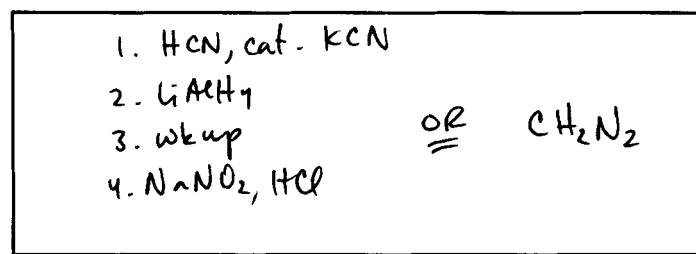 1. HCN, cat. KCN
2. LiAlH4
3. wkup
4. NaNO2, HCl
OR CH2N2